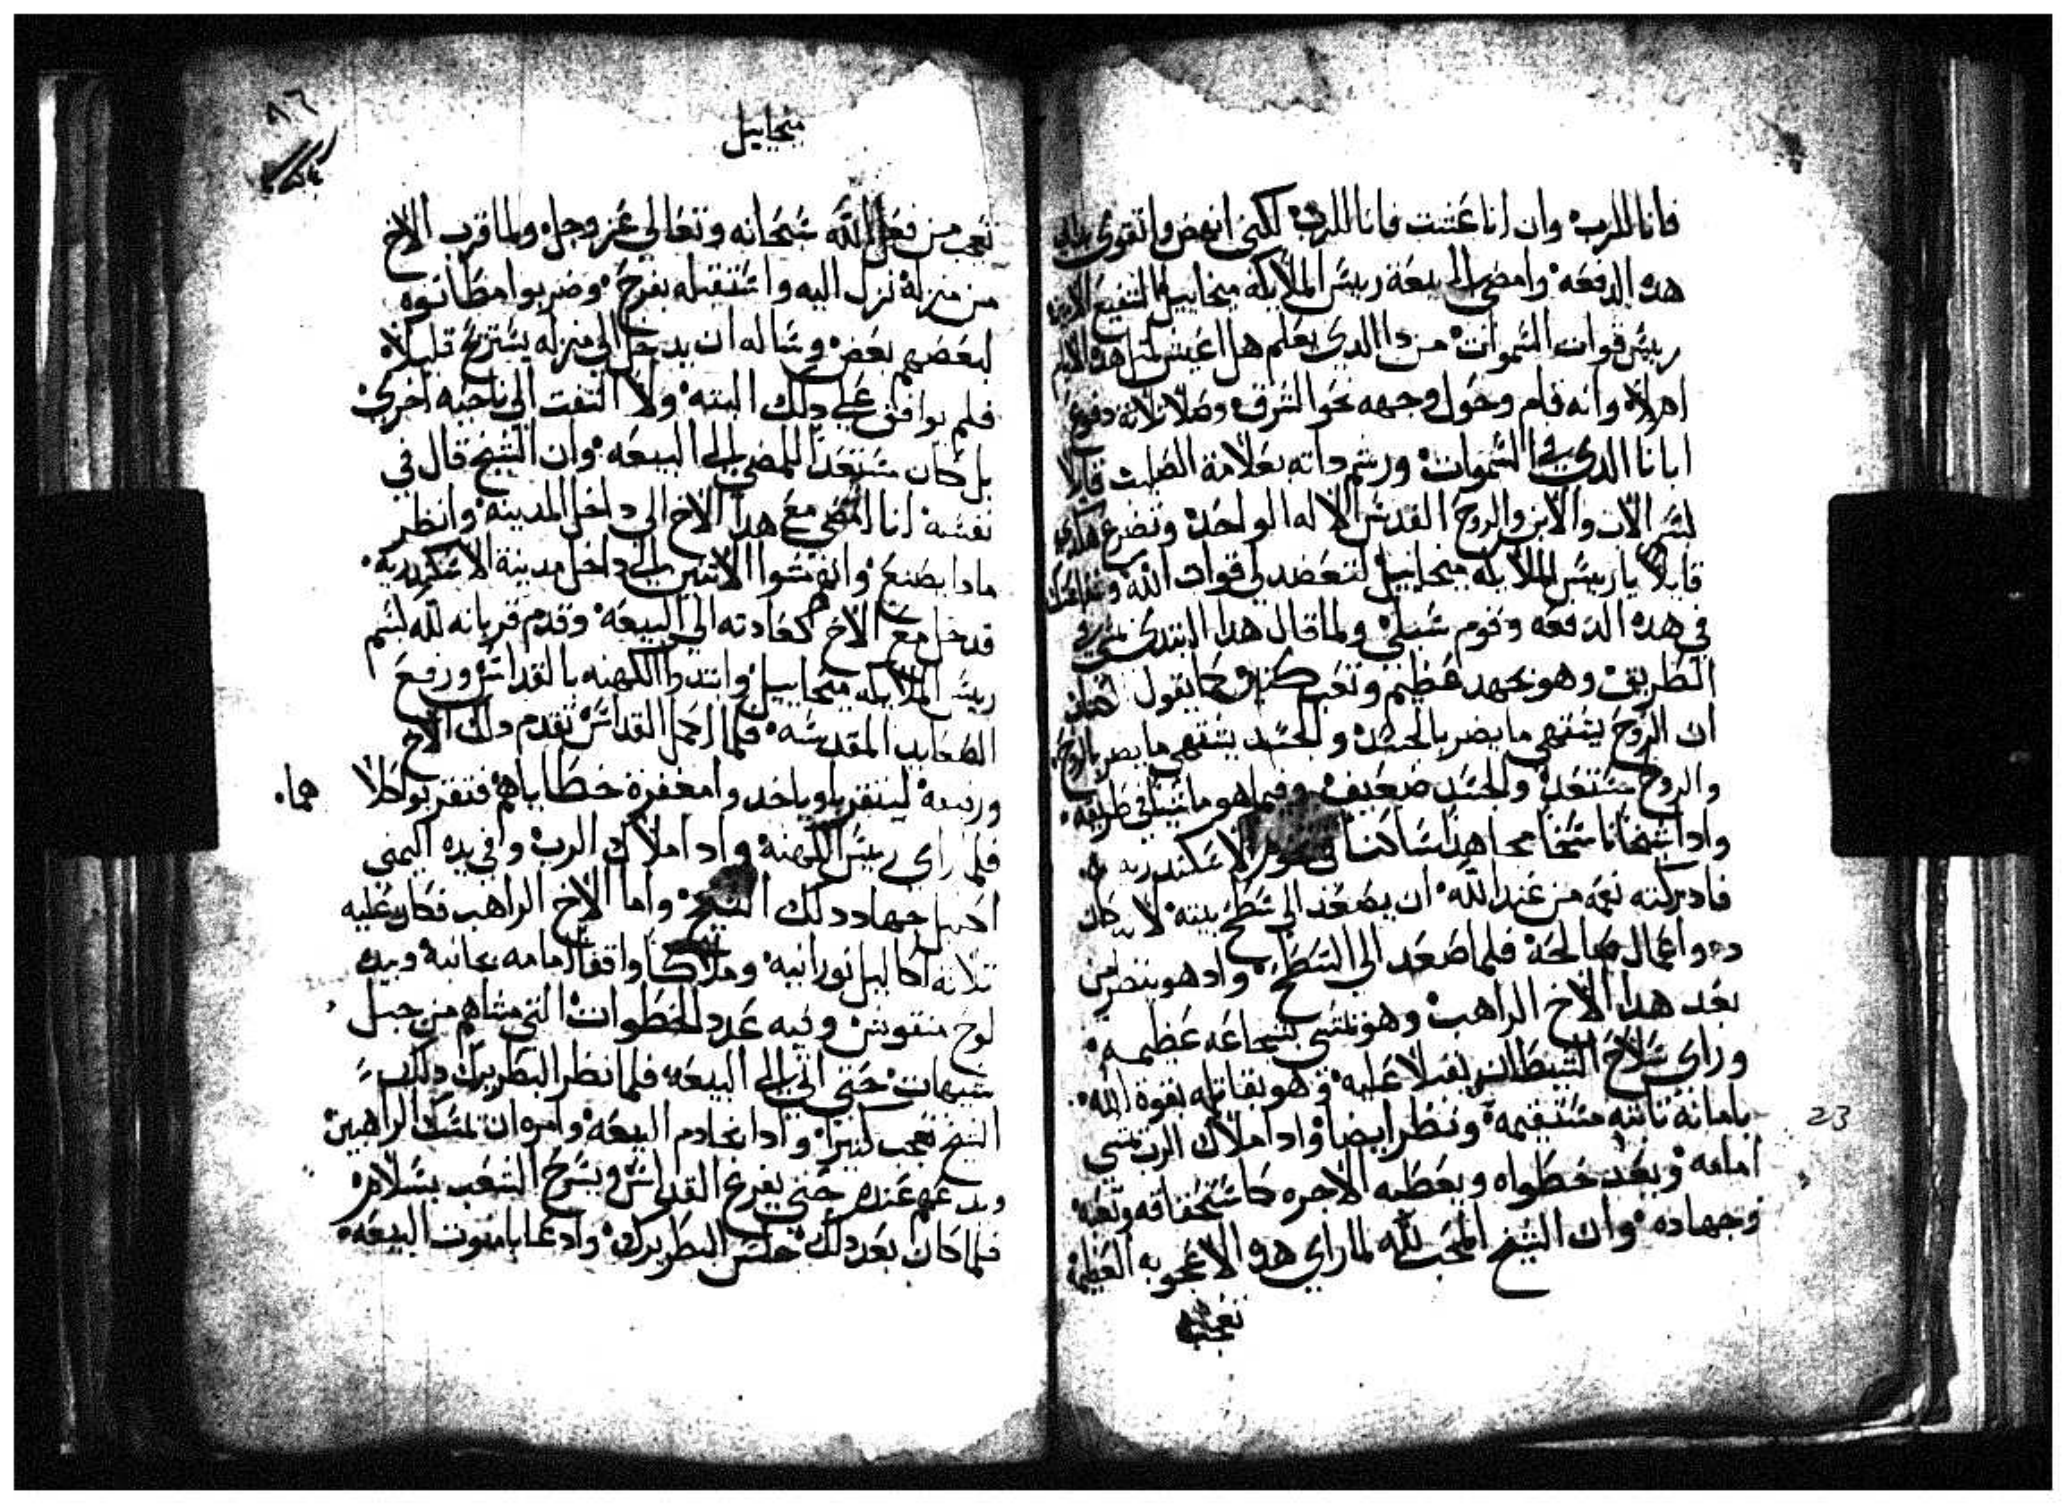 فانا للرب وان انا عشت فانا للرب لكني انهض واتقوي
هده الدفعه وامضي الي بيعة رييس الملايكه ميخاييل الشفيع
رييس قوات السموات من دا الدي يعلم هل اعيش لمثل هده الايام
ام لا وانه قام وحول وجهه نحو الشرق وصلا ثلاثه دفوع
ابانا الدي في السموات ورشم داته بعلامة الصليب قايلا
بسم الاب والابن والروح القدس الاله الواحد وتضرع هكدي
قايلا يا رييس الملايكه ميخاييل لتعضدني قوات الله
في هده الدفعه وقوم سبلي ولما قال هدا ابتدي يمشي في
الطريق وهو بجهد عظيم وتعب كثير كما يقول
ان الروح يشتهي ما يضر بالجسد والجسد يشتهي ما يضر بالروح
والروح مستعد والجسد ضعيف وفيما هو ماشيا في طريقه
وادا شيخانا شيخا مجاهدا ساكنا في الاسكندريه
فادركته نعمه من عند الله ان يصعد الي سطح بيته لانه كان
دو اعمال صالحة فلما صعد الي السطح واد هو ينظر من
بعد هدا الاخ الراهب وهو يمشي بشجاعه عظيمه
وراي سلاح الشيطان يقبلا عليه وهو يقاتله بقوة الله
بامانة ثابته مستقيمه ونظر ايضا وادا ملاك الرب يمشي
امامه ويعد خطواه ويعطيه الاجره كاستحقاقه وتعبه
وجهاده وان الشيخ المحب لله لما راي هده الاعجوبه العظيمه
تعجب
٨٦
ميخاييل
تعجب من فعل الله سبحانه وتعالي عز وجل ولما قرب الاخ
من منزله نزل اليه واستقبله بفرح وضربوا مطانوه
لبعضهم بعض وساله ان يدخل الي منزله يستريح قليلا
فلم يوافق علي دلك البته ولا التفت الي ناحيه اخري
بل كان مستعدا للمضي الي البيعه وان الشيخ قال في
نفسه انا امضي مع هدا الاخ الي داخل المدينه وانظر
مادا يصنع وانهم مشوا الاثنين الي داخل مدينة الاسكندريه
فدخل مع الاخ كعادته الي البيعه وقدم قربانه لله بسم
رييس الملايكه ميخاييل وابتدوا الكهنه بالقداس ورفع
الصعايد المقدسه فلما اكمل القداس تقدم دلك الاخ
ورفيقه ليتقربا وياخدوا مغفرة خطاياهم فتقربوا كلا هما
فلما راي رييس الكهنة واد املاك الرب وافي يده اليمني
اكليل جهاد دلك الشيخ واما الاخ الراهب فكان عليه
ثلاثه اكاليل نورانيه وملاكا واقفا امامه بجانبه وبيده
لوح منقوش وفيه عدد الخطوات التي مشاهم من جبل
شيهات حتي اتي الي البيعه فلما نظر البطريرك دلك
الشيخ تعجب كثيرا وادا بخادم البيعه وامره ان يمسك الراهبين
ويدعهم عنده حتي يفرغ القداس ويسرح الشعب بسلام
فلما كان بعد دلك جلس البطريرك وادعا بامنوت البيعه
23